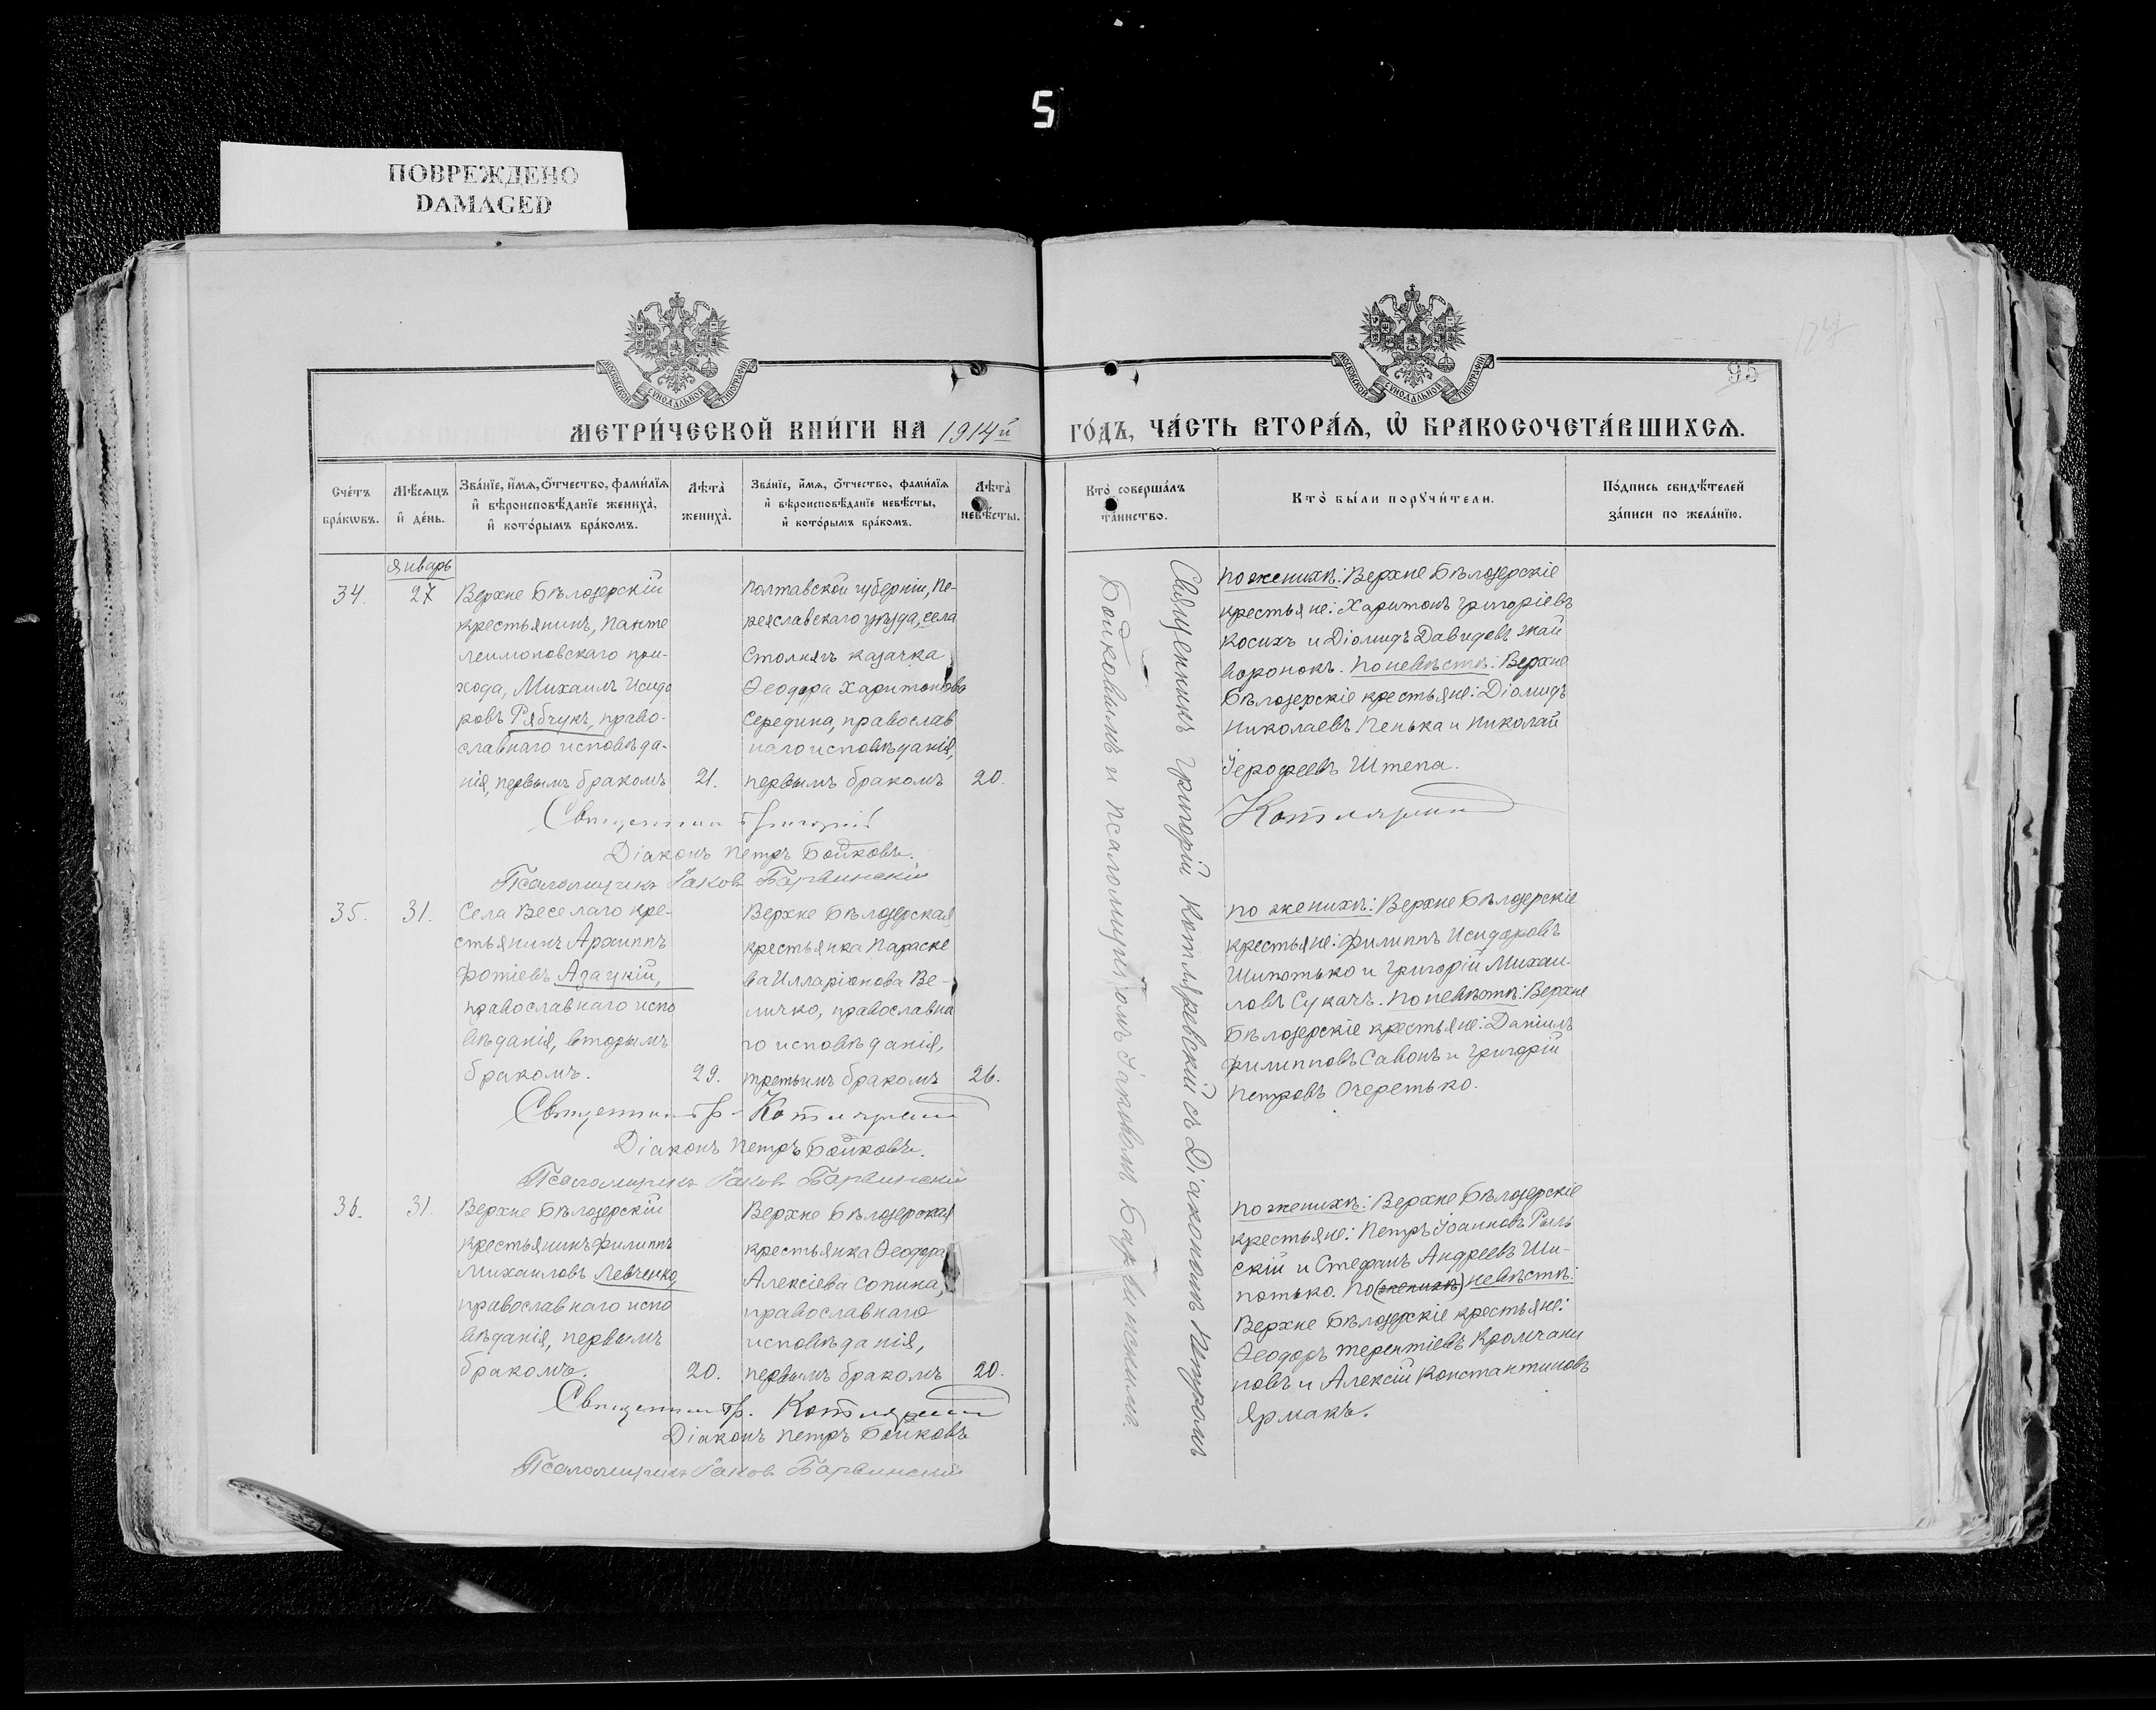 5
ПОВРЕЖДЕНО
DAMAGED
МОСКОВСКОЙ СѴНОДАЛЬНОЙ ТИПОГРАФІИ
МЕТРИ́ЧЕСКОЙ КНИ́ГИ НА 1914й
Сче́тъ бра́кѡвъ.
Мѣ́сяцъ и҆ де́нь.
Зва́нїе, и҆́мѧ, ѻ҆́тчество, фами́лїѧ и҆ вѣроисповѣ́данїе жениха̀, и҆ кото́рымъ бра́комъ.
Лѣта̀ жениха̀.
Зва́нїе, и҆́мѧ, ѻ҆́тчество, фами́лїѧ и҆ вѣроисповѣ́данїе невѣ́сты, и҆ кото́рымъ бра́комъ.
Лѣта̀ невѣ́сты.
Январь
34.
27
Верхне Бѣлозерскій
крестьянинъ, Панте
леимоновскаго при-
хода, Михаилъ Исидо
ровъ Рябчукъ, право-
славнаго исповѣда-
нія, первымъ бракомъ
21.
Полтавской губерніи, Пе-
реяславскаго уѣзда, села
Столнягъ казачка
Ѳеодора Харитонова
Середина, православ
наго исповѣданія,
первымъ бракомъ
20.
Священникъ Григорій
Діаконъ Петръ Бойковъ.
Псаломщикъ Іаковъ Барвинскій
35.
31.
Села Веселаго кре-
стьянинъ Архиппъ
Фотіевъ Азацкій,
православнаго испо
вѣданія, вторымъ
бракомъ.
29.
Верхне Бѣлозерская
крестьянка Параске
ва Илларіонова Ве-
личко, православна
го исповѣданія,
третьимъ бракомъ
26.
Священникъ Гр. Котляревскій
Діаконъ Петръ Бойковъ.
Псаломщикъ Іаковъ Барвинскій
36.
31.
Верхне Бѣлозерскій
крестьянинъ Филиппъ
Михаиловъ Левченко,
православнаго испо
вѣданія, первымъ
бракомъ.
20.
Верхне Бѣлозерская
крестьянка Ѳеодора
Алексіева Сопина,
православнаго
исповѣданія,
первымъ бракомъ
20.
Священникъ Гр. Котляревскій
Діаконъ Петръ Бойковъ
Псаломщикъ Іаковъ Барвинскій
МОСКОВСКОЙ СѴНОДАЛЬНОЙ ТИПОГРАФІИ
95
ГО́ДЪ, ЧА́СТЬ ВТОРА́Ѧ, Ѽ БРАКОСОЧЕТА́ВШИХСѦ.
Кто̀ соверша́лъ та́инство.
Кто̀ бы́ли порꙋчи́тели.
По́дпись свидѣ́телей за́писи по жела́нїю.
Священникъ Григорій Котляревскій съ Діакономъ Петромъ
Бойковымъ и псаломщикомъ Іаковомъ Барвинскимъ.
По женихѣ: Верхне Бѣлозерскіе
крестьяне: Харитонъ Григоріевъ
Косихъ и Діомидъ Давидовъ Жай
воронокъ. По невѣстѣ: Верхне
Бѣлозерскіе крестьяне: Діомидъ
Николаевъ Пенька и Николай
Іерофеевъ Штепа.
Котляревскій
По женихѣ: Верхне Бѣлозерскіе
крестьяне: Филиппъ Исидоровъ
Шипотько и Григорій Михаи-
ловъ Сукачъ. По невѣстѣ: Верхне
Бѣлозерскіе крестьяне: Даніилъ
Филипповъ Савонъ и Григорій
Петровъ Очеретько.
По женихѣ: Верхне Бѣлозерскіе
крестьяне: Петръ Іоанновъ Рыль
скій и Стефанъ Андреевъ Ши-
потько. По (женихѣ) невѣстѣ:
Верхне Бѣлозерскіе крестьяне:
Ѳеодоръ Терентіевъ Кромчани
новъ и Алексій Константиновъ
Ярмакъ.